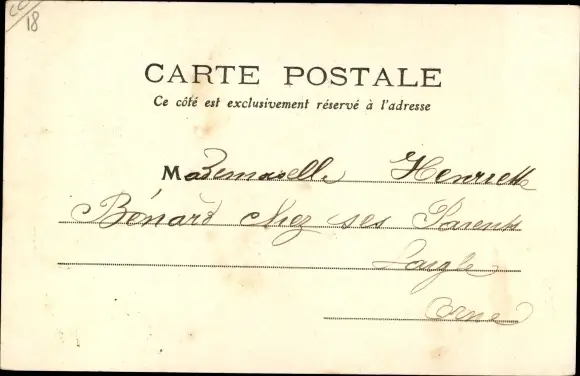 CC
18
CARTE POSTALE
Ce côté est exclusivement réservé à l'adresse
Mademoiselle Henriette
Bénard chez ses Parents
Laigle
Orne